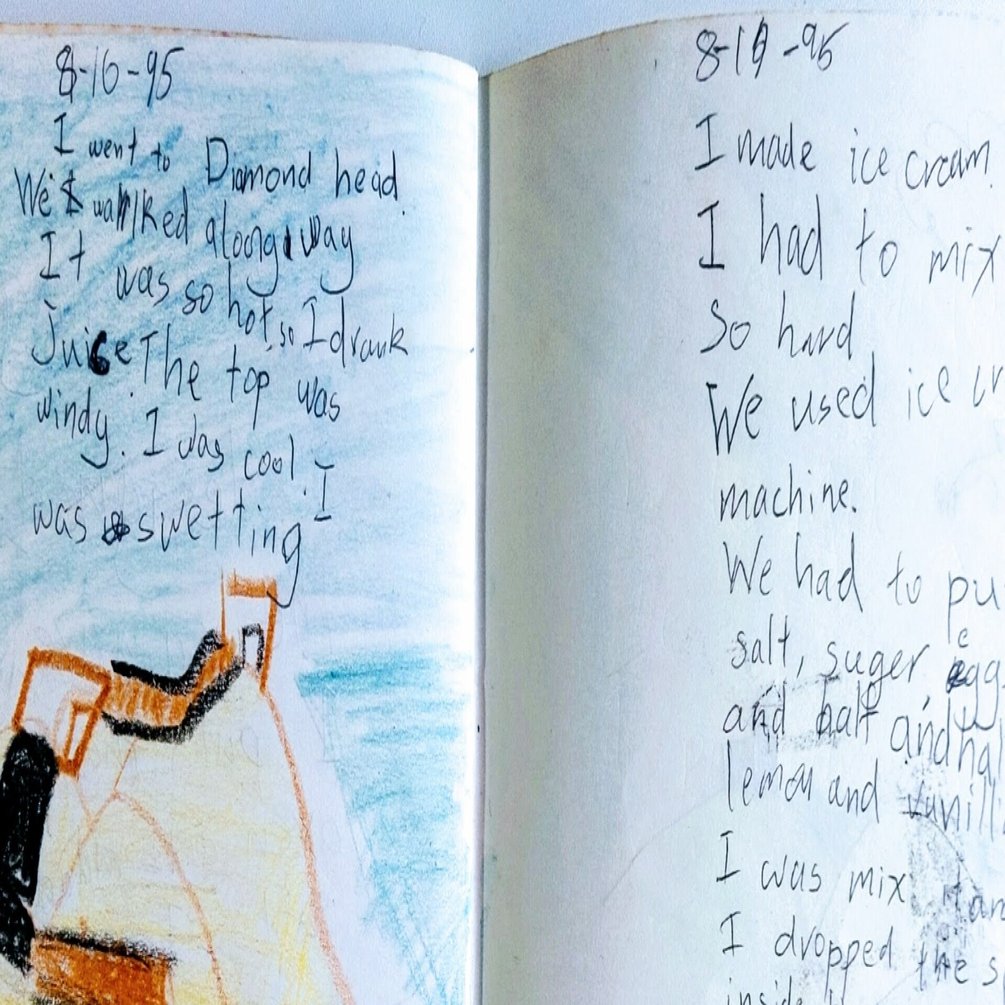 8-16-95
I went to Diamond head.
We walked aloong way
It was so hot, so I drank
Juice. The top was
windy. I was cool. I
was swetting
8-19-95
I made ice cream.
I had to mix
So hard
We used ice cr
machine.
We had to pu
salt, suger, egg
and half and hal
lemon and vanill
I was mix Har
I dropped the s
inside